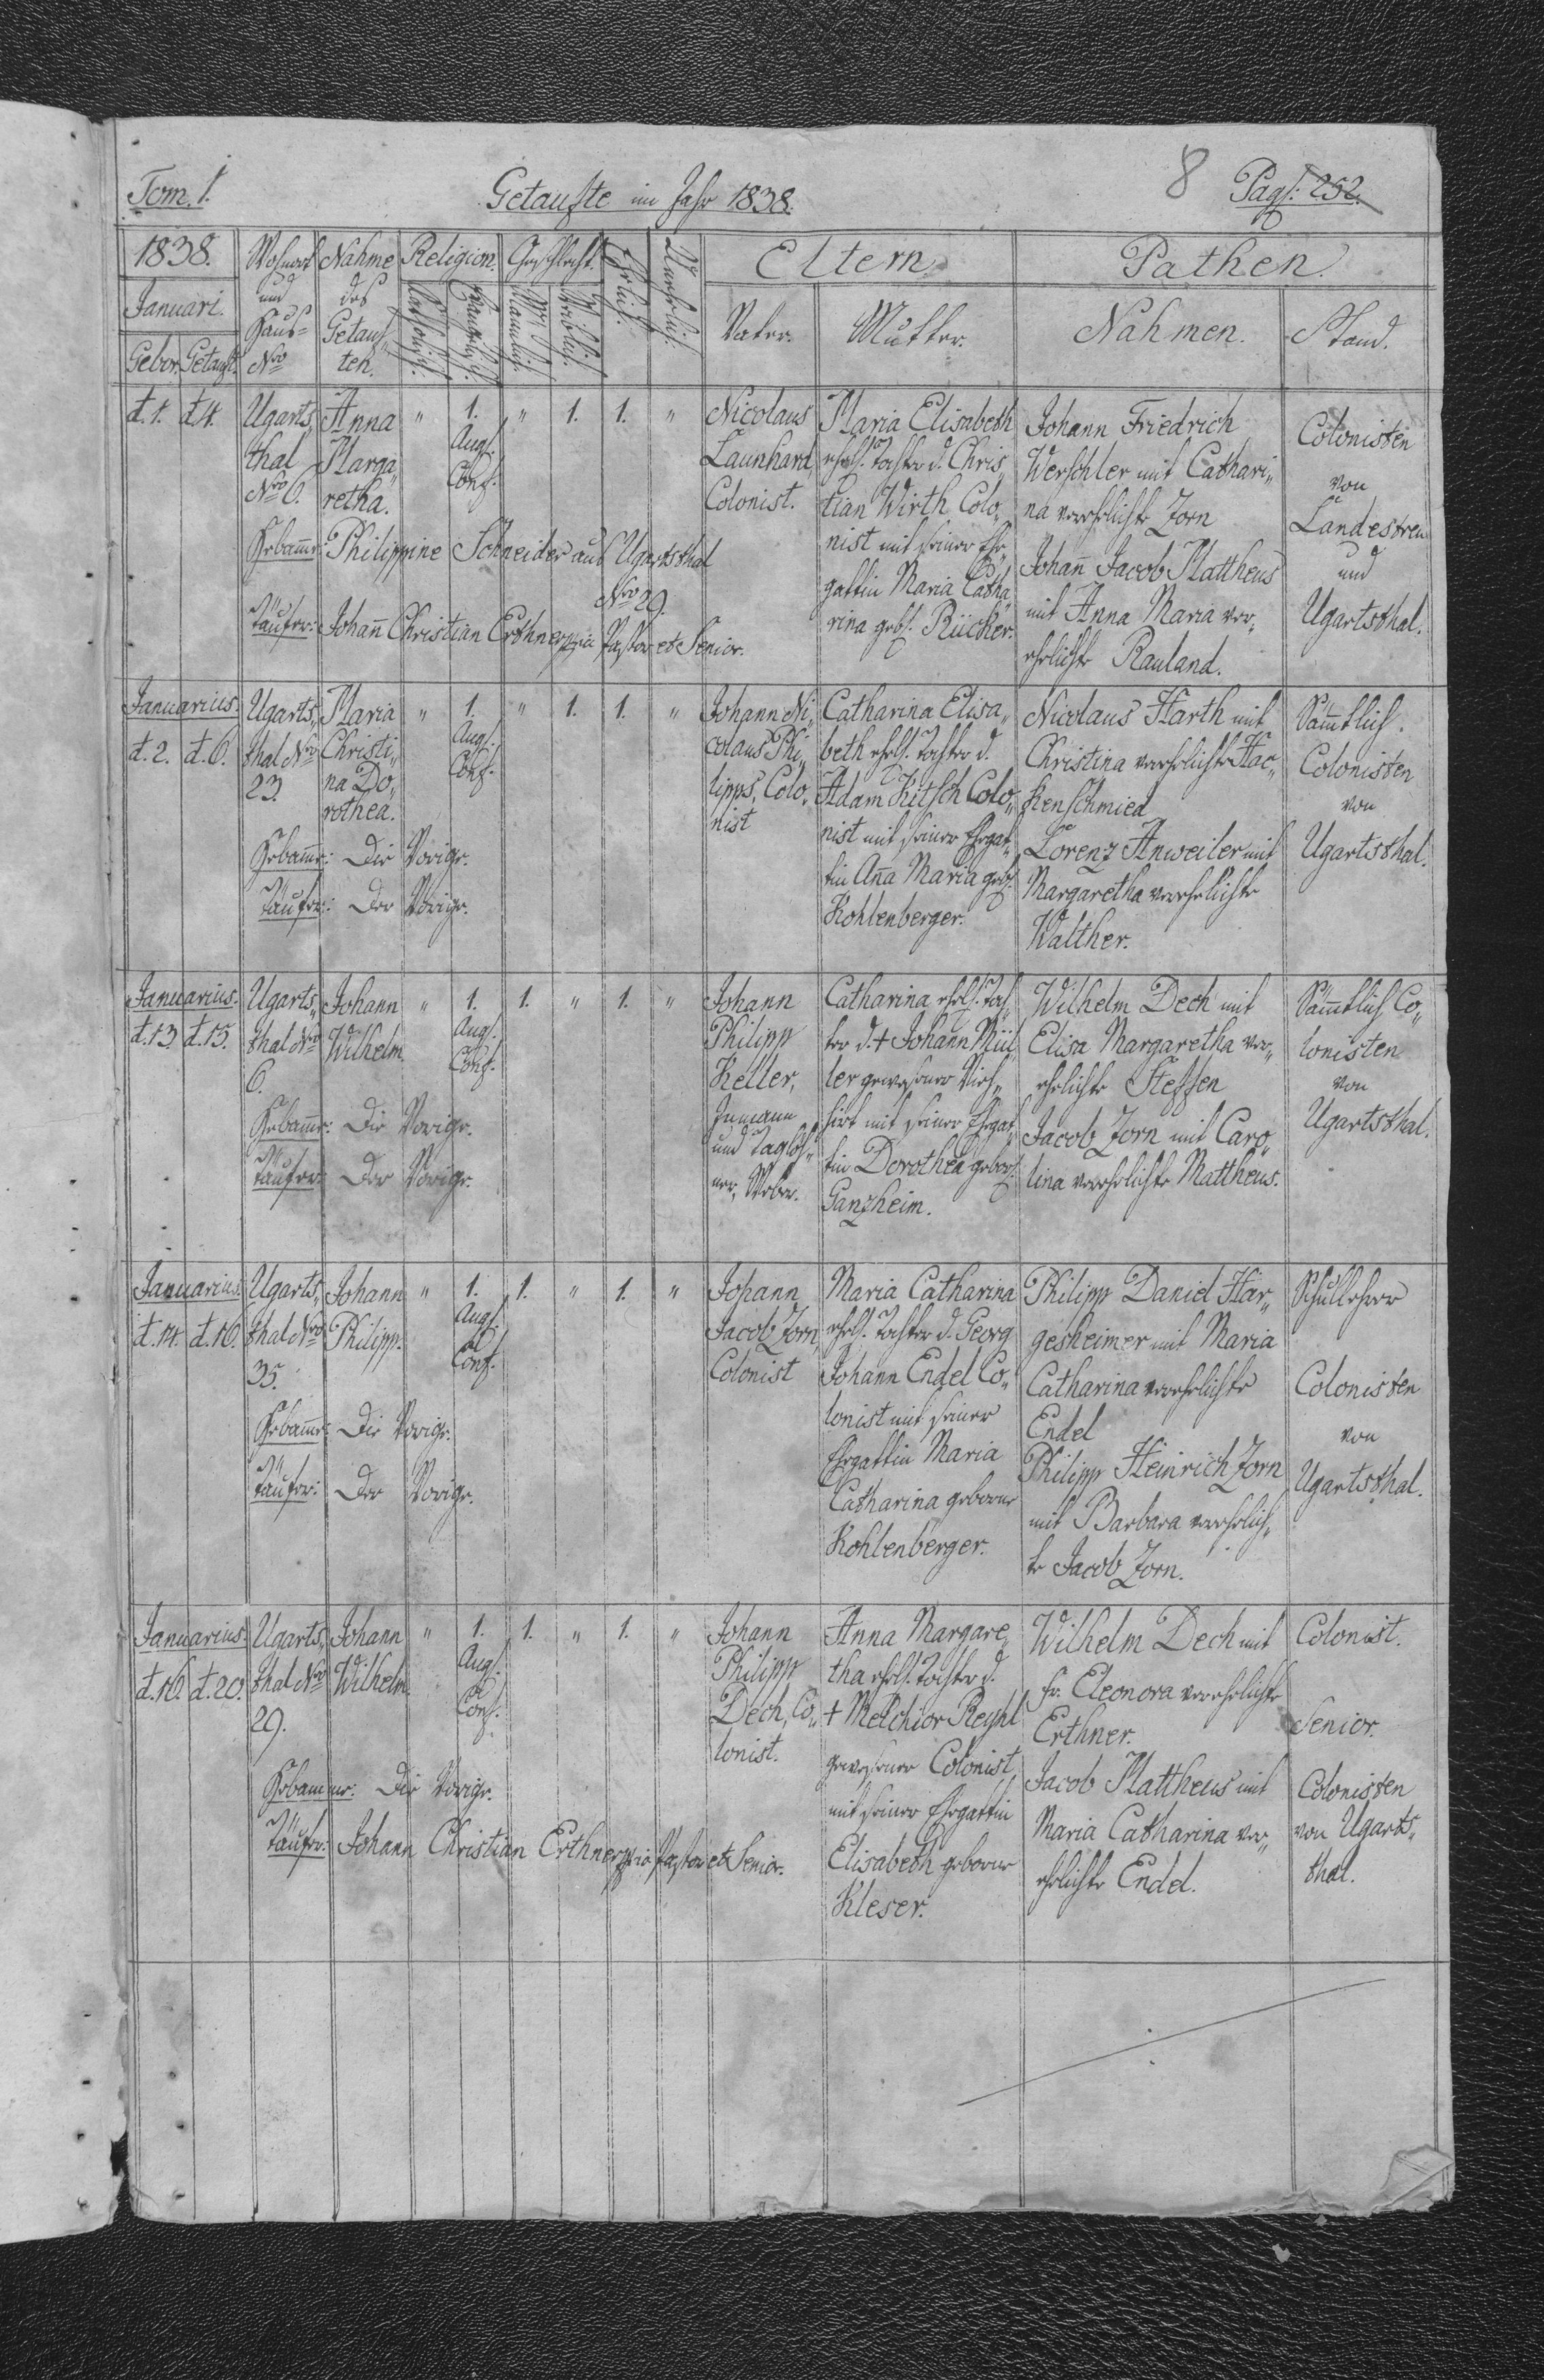 Tom. 1.
Getaufte im Jahr 1838.
8 Pag: 252.
1838.
Januari.
Gebor. Getauft.
Wohnort
und
Haus=
Nro
Nahme
des
Getauf„
ten.
Religion.
Catholisch.
Geschlecht.
Mänlich.
Weiblich.
Ehelich.
Unehelich.
Eltern.
Vater.
Mutter.
Pathen.
Nahmen.
Stand.
d. 1. d 4.
Ugarts„
thal
Nro 6.
Anna
Marga„
retha.
" 1. " 1. 1. "
Augs.
Conf.
Nicolaus
Launhard
Colonist.
Maria Elisabeth
ehel. Tochter d. Chris„
tian Wirth Colo„
nist mit seiner Ehe„
gattin Maria Catha„
rina geb. Rücker.
Johann Friedrich
Werschler mit Cathari„
na verehelichte Zorn
Johañ Jacob Mattheus
mit Anna Maria ver„
ehelichte Rauland.
Colonisten
von
Landestreu
und
Ugartsthal.
Hebam̄e: Philippine Schneider aus Ugartsthal
Nro 29.
Täufer: Johañ Christian Erthner Pastor et Senior.
Januarius.
d. 2. d. 6.
Ugarts„
thal Nro
23.
Maria
Christi„
na Do„
rothea.
" 1. " 1. 1. "
Augs.
Conf.
Johann Ni„
colaus Phi„
lipps, Colo„
nist
Catharina Elisa„
beth ehel. Tochter d.
Adam Kitsch Colo„
nist mit seiner Ehegat„
tin Aña Maria geb.
Kohlenberger.
Nicolaus Harth mit
Christina verehelichte Hac„
kenschmied
Lorenz Anweiler mit
Margaretha verehelichte
Walther.
Säm̄tlich.
Colonisten
von
Ugartsthal.
Hebam̄e: Die Vorige.
Täufer: Der Vorige.
Januarius.
d. 13. d. 15.
Ugarts„
thal Nro
6.
Johann
Wilhelm
" 1. 1. " 1. "
Augs.
Conf.
Johann
Philipp
Keller,
Inmann
und Taglöh„
ner, Weber.
Catharina ehel. Toch„
ter d. + Johann Mül„
ler gewesener Vieh„
hirt mit seiner Ehegat„
tin Dorothea gebor.
Ganzheim.
Wilhelm Dech mit
Elisa Margaretha ver„
ehelichte Steffen
Jacob Zorn mit Caro„
lina verehelichte Mattheus.
Säm̄tlich Co„
lonisten
von
Ugartsthal.
Hebam̄e: Die Vorige.
Täufer: Der Vorige.
Januarius.
d. 14. d. 16.
Ugarts„
thal Nro
35.
Johann
Philipp.
" 1. 1. " 1. "
Augs.
Conf.
Johann
Jacob Zorn,
Colonist
Maria Catharina
ehel. Tochter d. Georg
Johann Endel Co„
lonist mit seiner
Ehegattin Maria
Catharina geborne
Kohlenberger.
Philipp Daniel Har„
gesheimer mit Maria
Catharina verehelichte
Endel
Philipp Heinrich Zorn
mit Barbara verehelich„
te Jacob Zorn.
Schullehrer
Colonisten
von
Ugartsthal.
Hebam̄e: Die Vorige.
Täufer: Der Vorige.
Januarius
d. 16. d. 20.
Ugarts„
thal Nro
29.
Johann
Wilhelm
" 1. 1. " 1. "
Augs.
Conf.
Johann
Philipp
Dech, Co„
lonist.
Anna Margare„
tha ehel. Tochter d.
+ Melchior Reyhl
gewesener Colonist
mit seiner Ehegattin
Elisabeth geborne
Kleser.
Wilhelm Dech mit
Fr. Eleonora verehelichte
Erthner.
Jacob Mattheus mit
Maria Catharina ver„
ehelichte Endel.
Colonist.
Senior.
Colonisten
von Ugarts„
thal.
Hebamme: Die Vorige.
Täufer: Johann Christian Erthner Pastor et Senior.